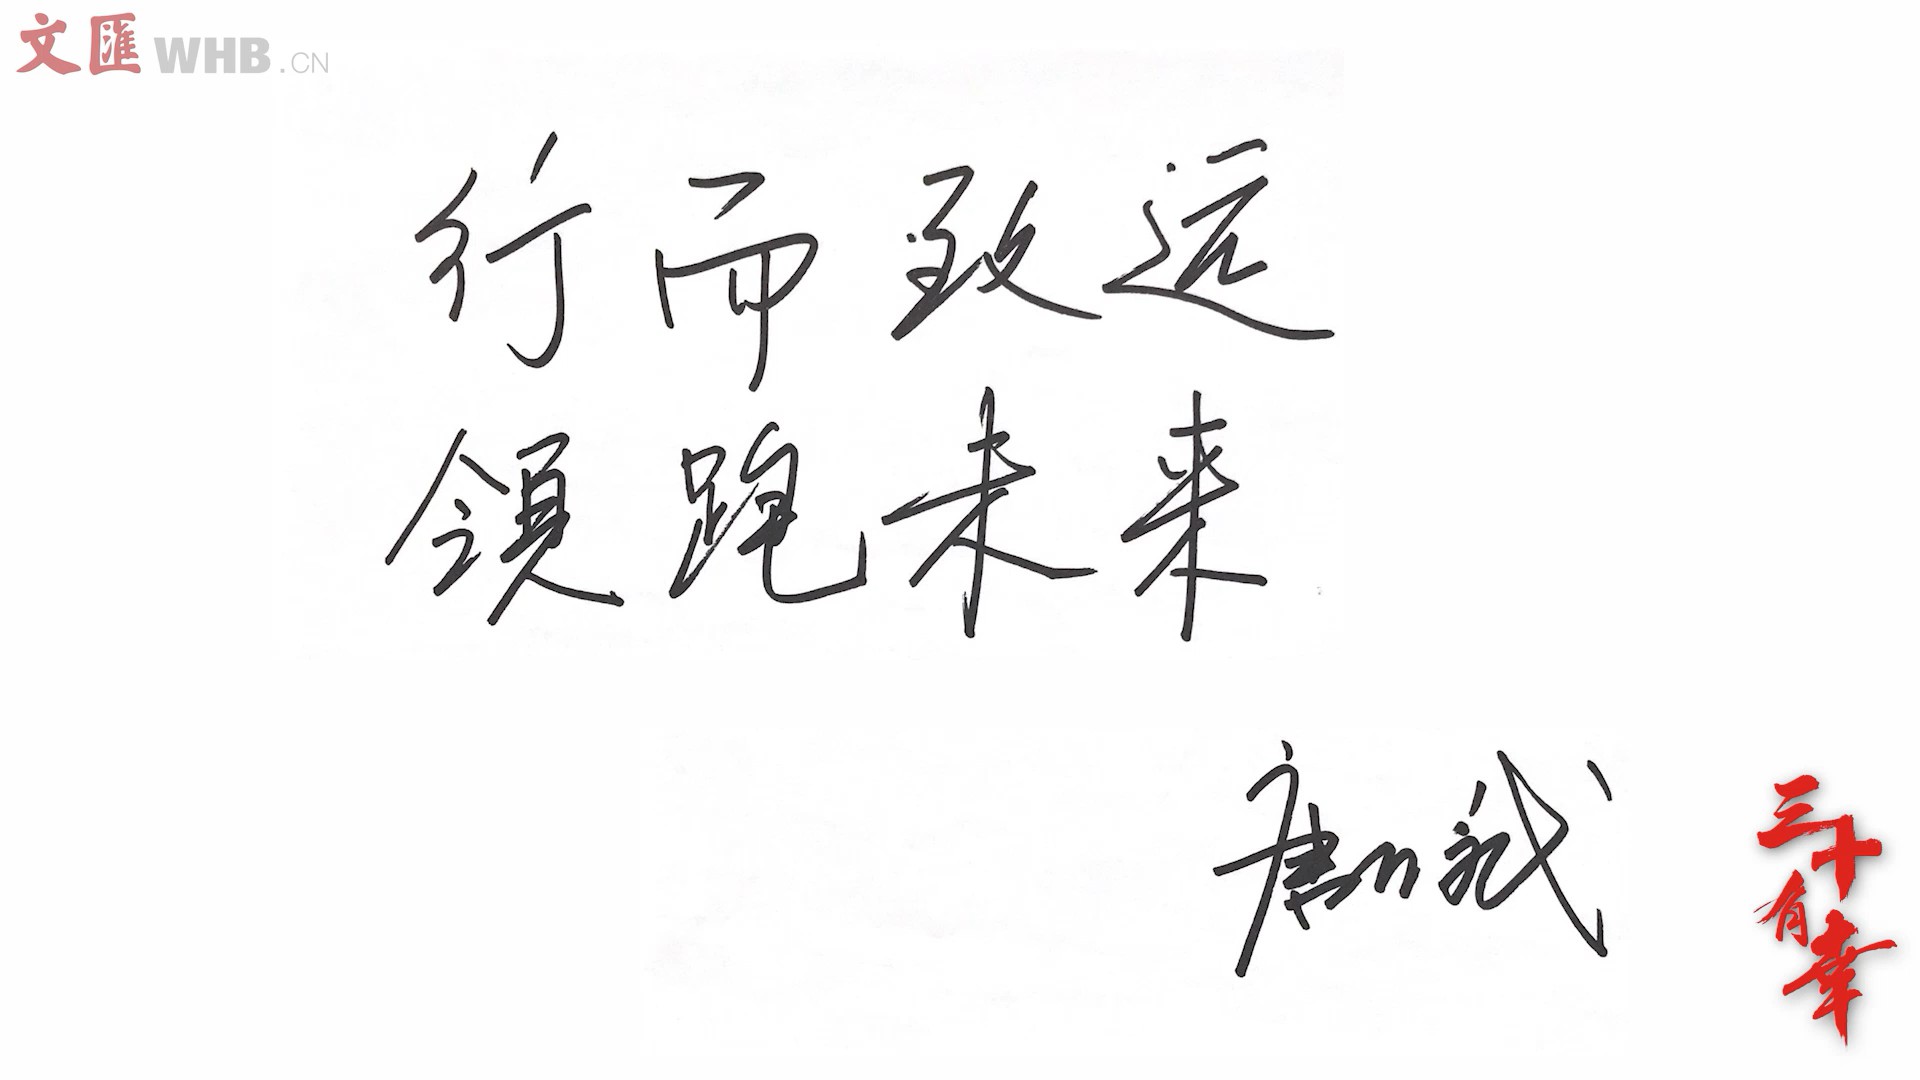 文匯 WHB.CN
行而致远
领跑未来
三十
有幸